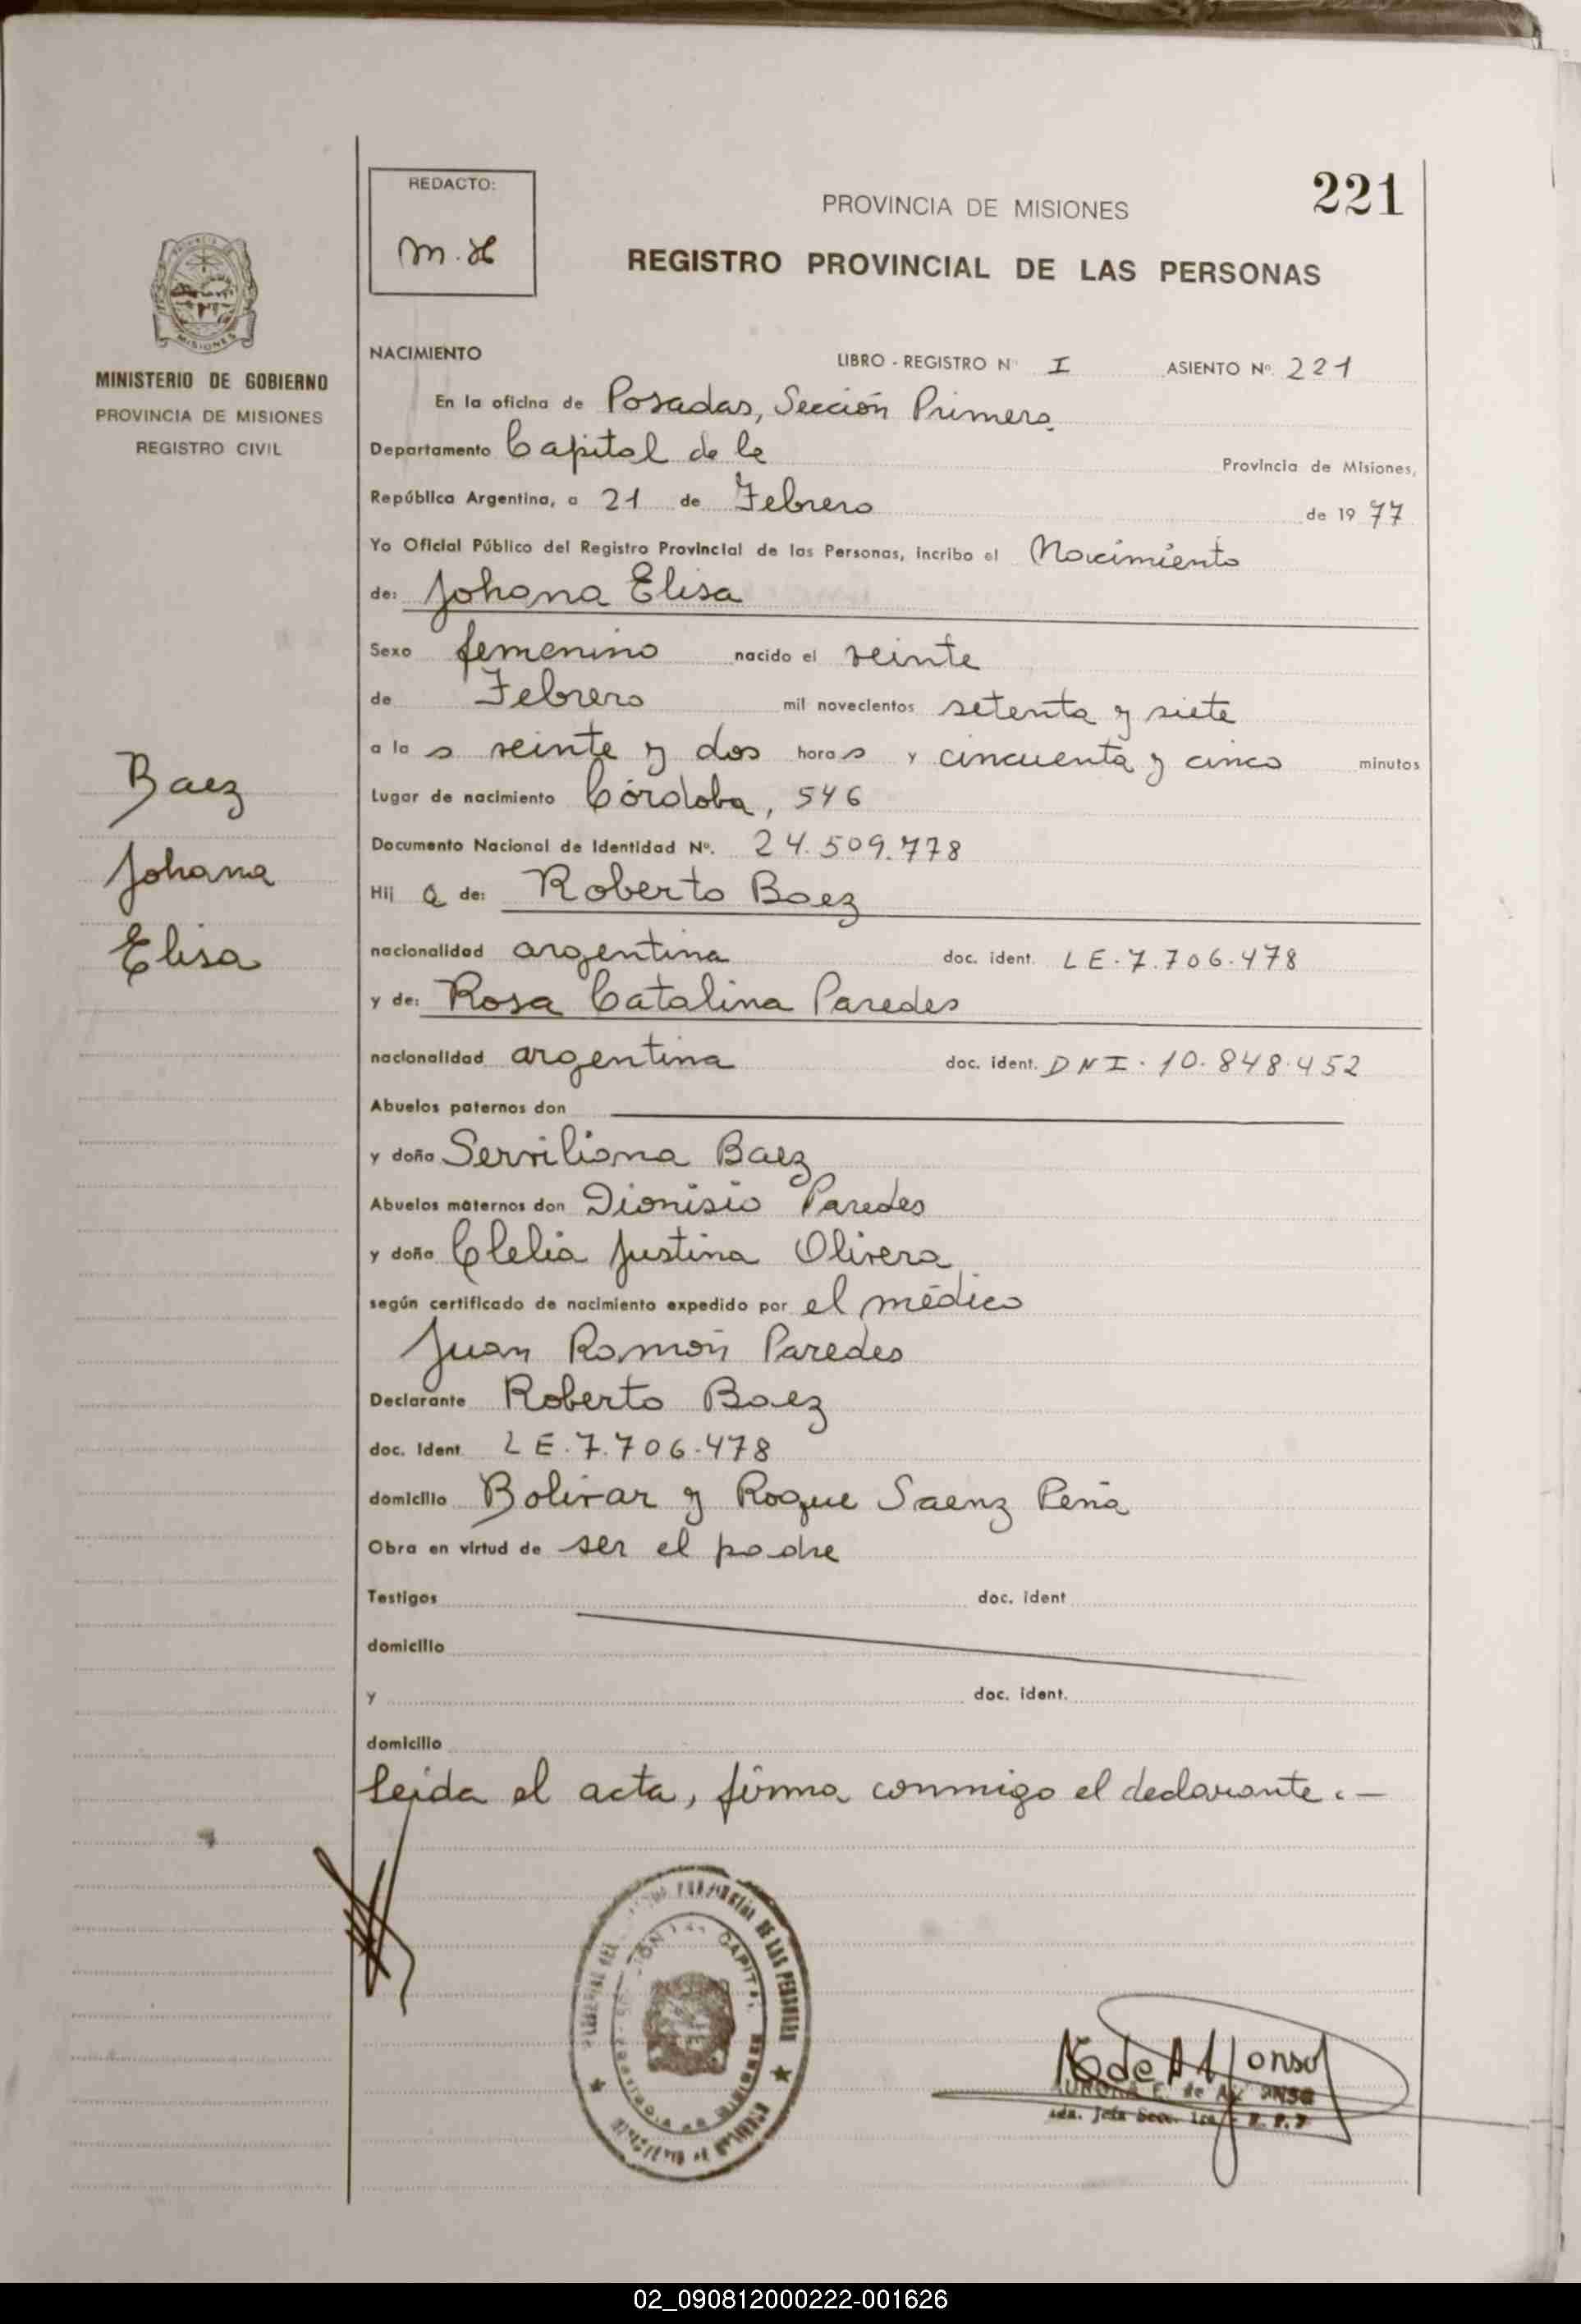 221
REDACTO:
m.H
PROVINCIA DE MISIONES
REGISTRO PROVINCIAL DE LAS PERSONAS
MISIONES
MINISTERIO DE GOBIERNO
PROVINCIA DE MISIONES
REGISTRO CIVIL
NACIMIENTO LIBRO - REGISTRO Nº I ASIENTO Nº 221
En la oficina de Posadas, Sección Primera
Departamento Capital de la Provincia de Misiones,
República Argentina, a 21 de Febrero de 1977
Yo Oficial Público del Registro Provincial de las Personas, incribo el Nacimiento
de: Johana Elisa
Sexo femenino nacido el veinte
de Febrero mil novecientos setenta y siete
a la s veinte y dos hora s y cincuenta y cinco minutos
Lugar de nacimiento Córdoba, 546
Documento Nacional de Identidad Nº. 24.509.778
Hij a de: Roberto Baez
nacionalidad argentina doc. ident. LE.7.706.478
y de: Rosa Catalina Paredes
nacionalidad argentina doc. ident. DNI.10.848.452
Abuelos paternos don
y doña Serviliana Baez
Abuelos maternos don Dionisio Paredes
y doña Clelia Justina Olivera
según certificado de nacimiento expedido por el médico
Juan Ramón Paredes
Declarante Roberto Baez
doc. Ident LE.7.706.478
domicilio Bolivar y Roque Saenz Peña
Obra en virtud de ser el padre
Testigos doc. ident
domicilio
y doc. ident.
domicilio
Leida el acta, firma conmigo el declarante.—
Baez
Johana
Elisa
DE LAS PERSONAS
CAPITAL
MISIONES
de Alfonso
AURORA E. de
02_090812000222-001626